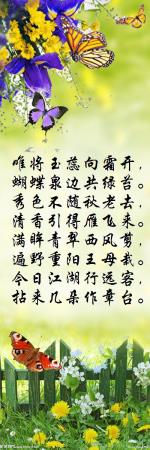 唯将玉蕊向霜开，
蝴蝶泉边共绿苔。
秀色不随秋老去，
清香引得雁飞来。
满眸青翠西风剪，
遍野重阳王母栽。
今日江湖行远客，
拈来几朵作章台。